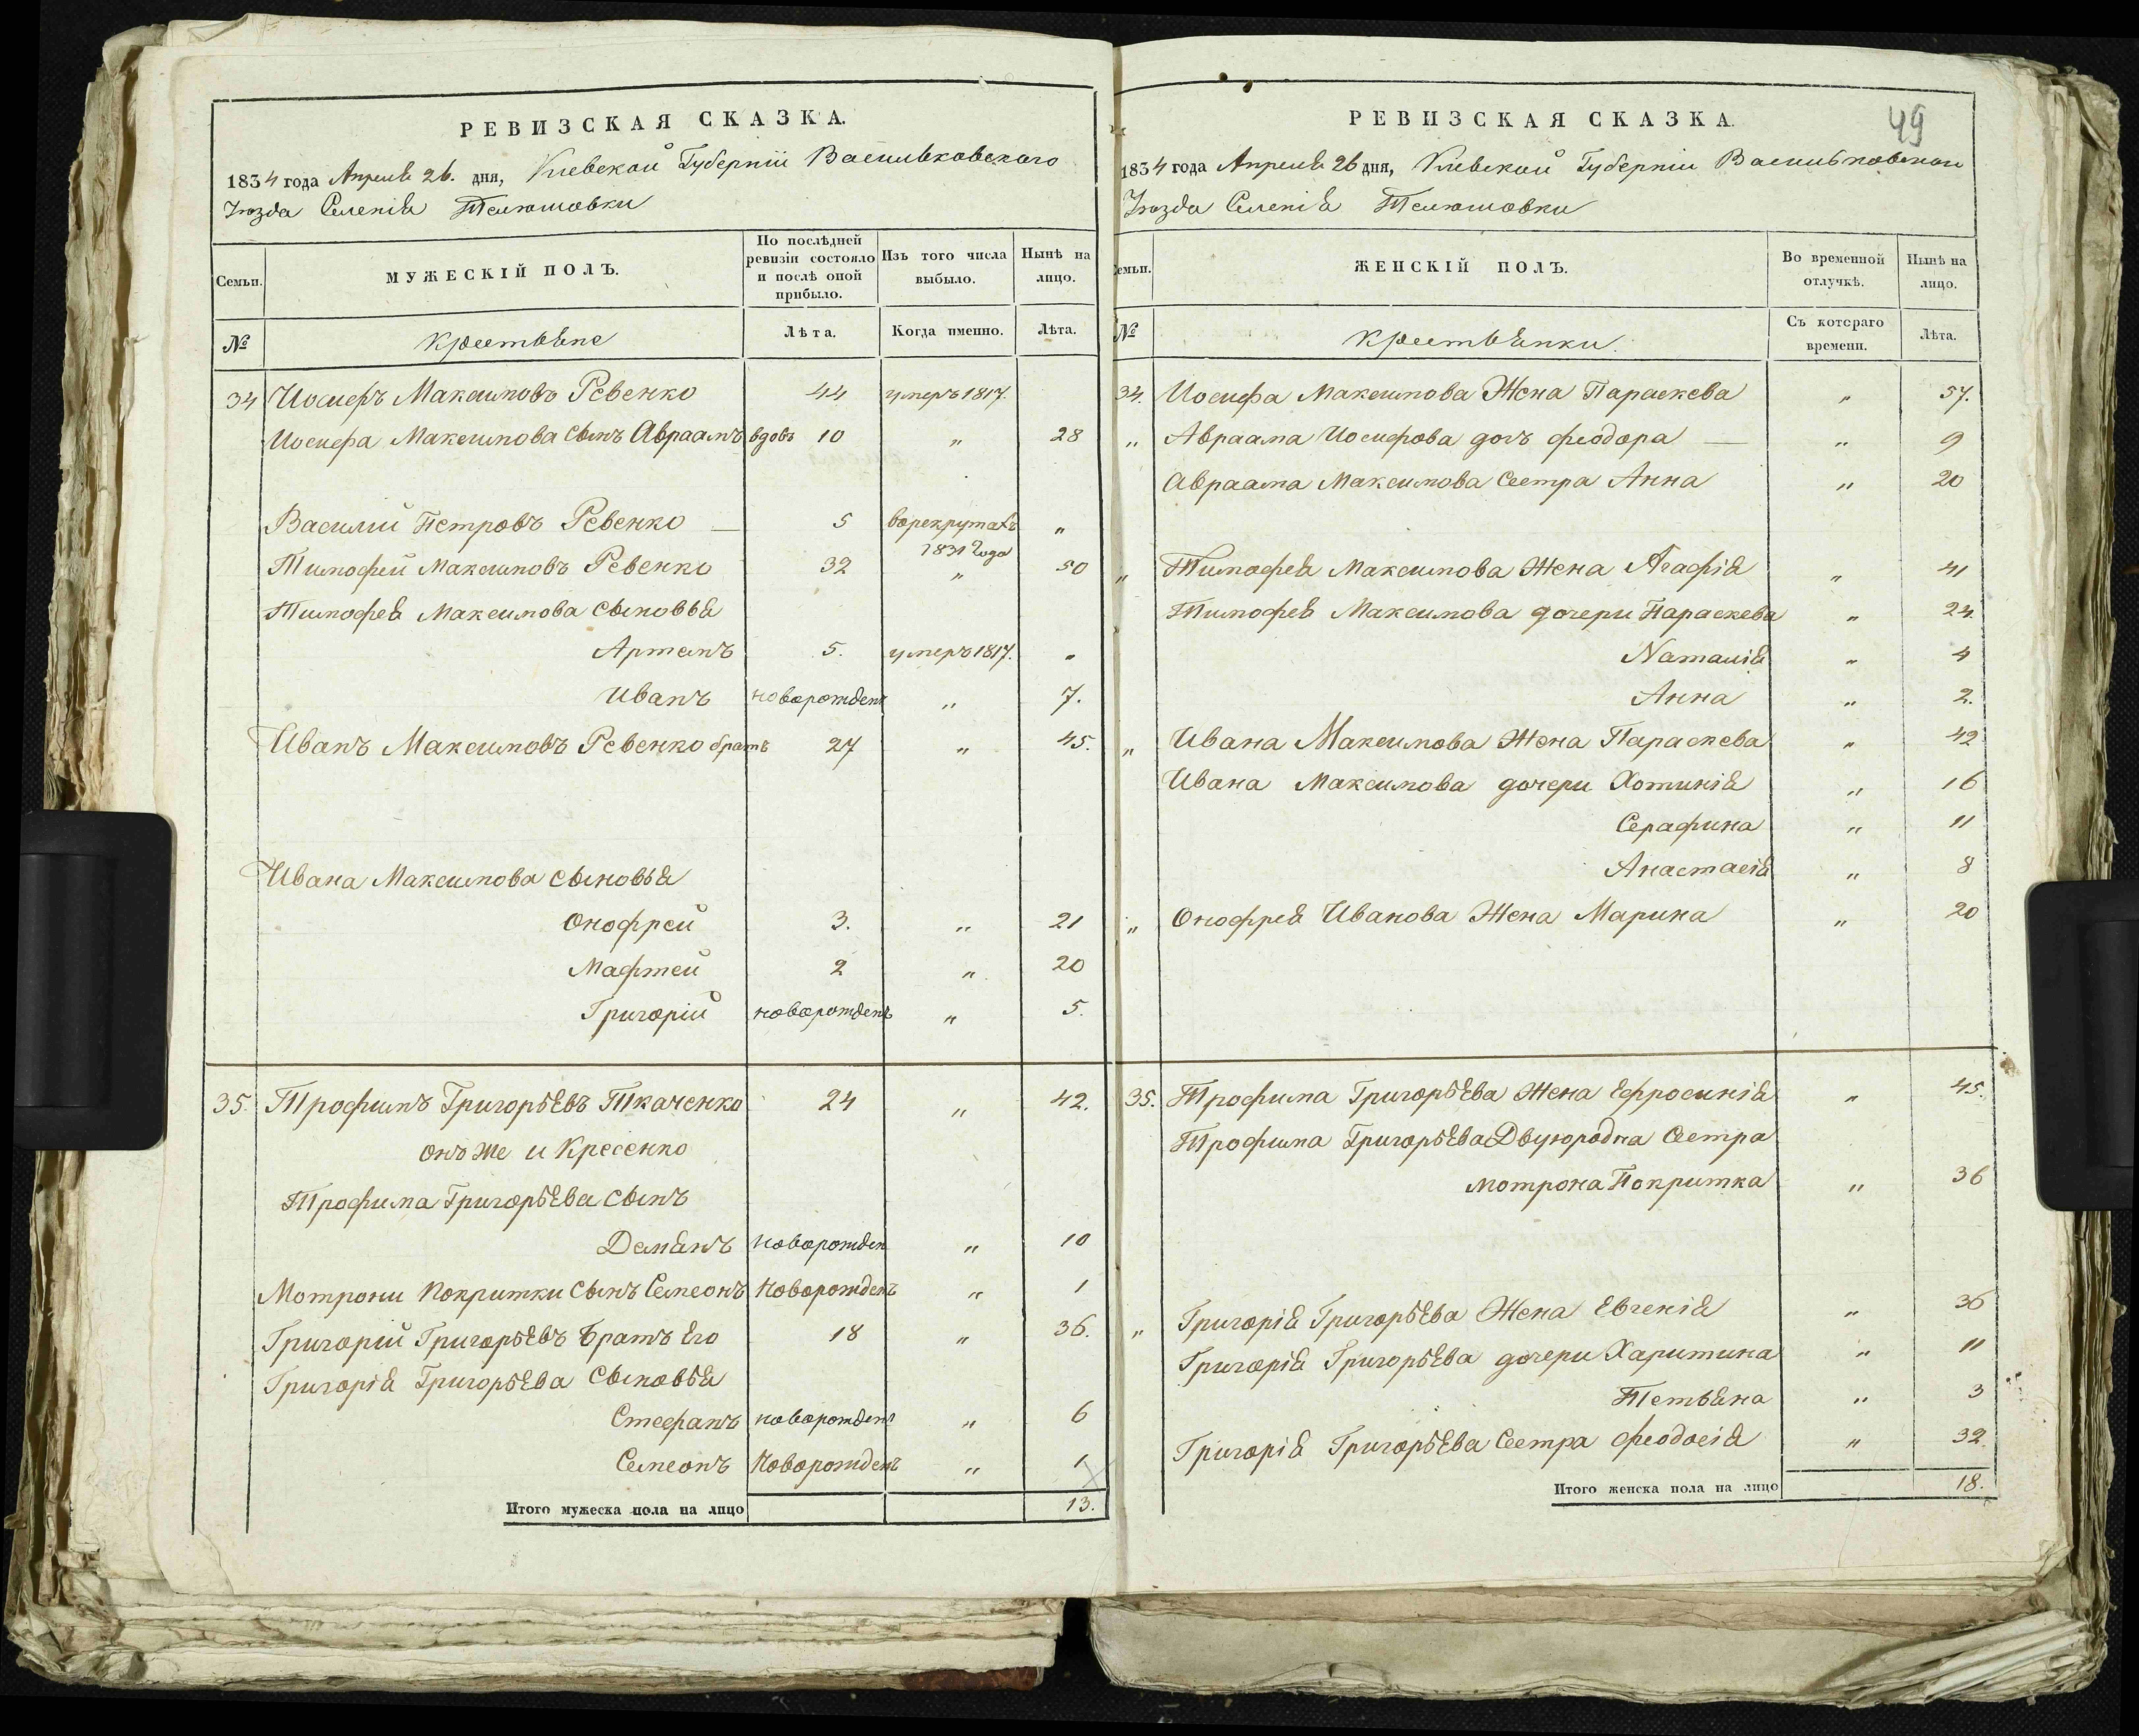 РЕВИЗСКАЯ СКАЗКА.
1834 года Апреля 26. дня, Киевской Губернiи Васильковского
Уюзда Селенiя Телюшовки
Семьи. МУЖЕСКІЙ ПОЛЪ. По послѣдней ревизіи состояло и послѣ оной прибыло. Изъ того числа выбыло. Нынѣ на лицо.
№ Крестьяне Лѣта. Когда именно. Лѣта.
34 Иосифъ Максимовъ Ревенко 44 умеръ 1817.
Иосифа Максимова сынъ Авраамъ вдовъ 10 " 28
Василий Петровъ Ревенко — 5 ворекрутахъ 1831 года "
Тимофей Максимовъ Ревенко 32 " 50
Тимофея Максимова сыновья
Артемъ 5. умеръ 1817. "
Иванъ новорожденъ " 7.
Иванъ Максимовъ Ревенко братъ 27 " 45.
Ивана Максимова сыновья
Онофрей 3. " 21
Мафтей 2 " 20
Григорій новорожденъ " 5.
35. Трофимъ Григорьевъ Ткаченко 24 " 42.
онъ же и Кресенко
Трофима Григорьева сынъ
Демянъ новорожден " 10
Мотрони Покритки сынъ Семеонъ Новорожденъ " 1
Григорій Григорьевъ Братъ Его 18 " 36.
Григорія Григорьева сыновья
Стефанъ новорожденъ " 6
Семеонъ Новорожденъ " 1
Итого мужеска пола на лицо 13.
49
РЕВИЗСКАЯ СКАЗКА.
1834 года Апреля 26 дня, Киевской Губерніи Васильковской
Уюзда Селенія Телюшовки
Семьи. ЖЕНСКІЙ ПОЛЪ. Во временной отлучкѣ. Нынѣ на лицо.
№ Крестьянки. Съ котораго времени. Лѣта.
34. Иосифа Максимова Жена Параскева " 57.
" Авраама Иосифова дочь Феодора — " 9
Авраама Максимова Сестра Анна " 20
" Тимофея Максимова Жена Агафія " 41
Тимофея Максимова дочери Параскева " 24.
Наталія " 4
Анна " 2.
" Ивана Максимова Жена Параскева " 42
Ивана Максимова дочери Хотинія " 16
Серафина " 11
Анастасія " 8
" Онофрея Иванова Жена Марина " 20
35. Трофима Григорьева Жена Ефросинія " 45.
Трофима Григорьева Двуюродна Сестра
Мотрона Покритка " 36
" Григорія Григорьева Жена Евгенія " 36
Григорія Григорьева дочери Харитина " 11
Тетьяна " 3
Григорія Григорьева Сестра Феодосія " 32
Итого женска пола на лицо 18.